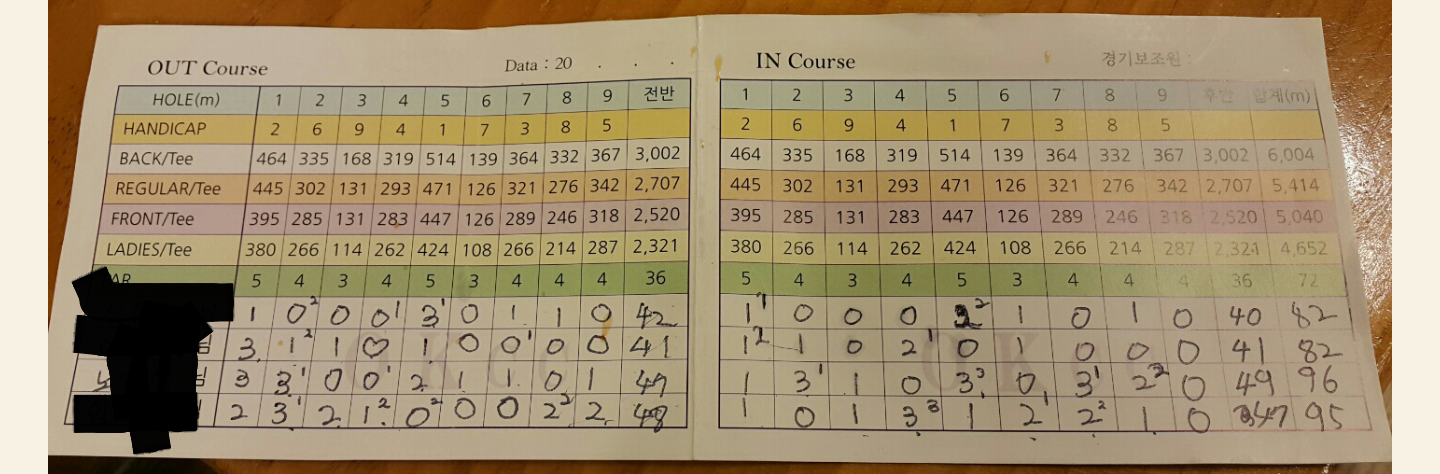 OUT Course Data : 20 . . .
HOLE(m) 1 2 3 4 5 6 7 8 9 전반
HANDICAP 2 6 9 4 1 7 3 8 5
BACK/Tee 464 335 168 319 514 139 364 332 367 3,002
REGULAR/Tee 445 302 131 293 471 126 321 276 342 2,707
FRONT/Tee 395 285 131 283 447 126 289 246 318 2,520
LADIES/Tee 380 266 114 262 424 108 266 214 287 2,321
AR 5 4 3 4 5 3 4 4 4 36
1 0² 0 0¹ 3¹ 0 1 1 0 42
님 3 1² 1 0 1 0 0¹ 0 0 41
님 3 3¹ 0 0¹ 2 1 1 0 1 47
2 3¹ 2 1² 0² 0 0 2² 2 48
IN Course 경기보조원 :
1 2 3 4 5 6 7 8 9 후반 합계(m)
2 6 9 4 1 7 3 8 5
464 335 168 319 514 139 364 332 367 3,002 6,004
445 302 131 293 471 126 321 276 342 2,707 5,414
395 285 131 283 447 126 289 246 318 2,520 5,040
380 266 114 262 424 108 266 214 287 2,321 4,652
5 4 3 4 5 3 4 4 4 36 72
1¹ 0 0 0 2² 1 0 1 0 40 82
1² 1 0 2¹ 0 1 0 0 0 41 82
1 3¹ 1 0 3³ 0 3¹ 2² 0 49 96
1 0 1 3³ 1 2¹ 2² 1 0 47 95